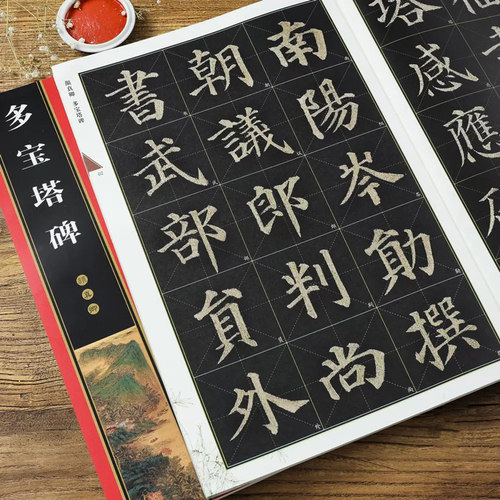 塔感應
南陽岑勛撰
朝議郎判尚
書武部員外
颜真卿 多宝塔碑
02
多宝塔碑
颜真卿